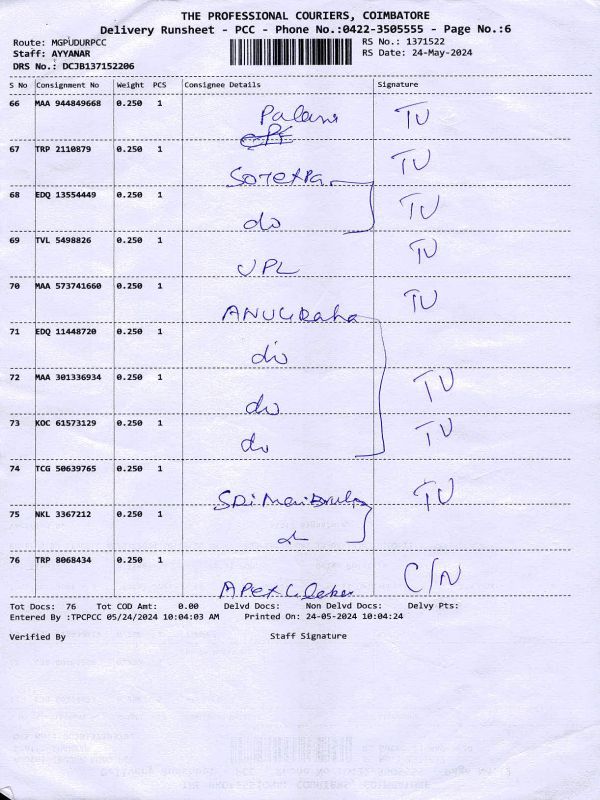 THE PROFESSIONAL COURIERS, COIMBATORE
Delivery Runsheet - PCC - Phone No.:0422-3505555 - Page No.:6
Route: MGPUDURPCC RS No.: 1371522
Staff: AYYANAR RS Date: 24-May-2024
DRS No.: DCJB137152206
S No Consignment No Weight PCS Consignee Details Signature
66 MAA 944849668 0.250 1 TU
67 TRP 2110879 0.250 1 TU
68 EDQ 13554449 0.250 1 do TU
69 TVL 5498826 0.250 1 UPL TU
70 MAA 573741660 0.250 1 ANUGRaha TU
71 EDQ 11448720 0.250 1 do
72 MAA 301336934 0.250 1 do TU
73 KOC 61573129 0.250 1 do TU
74 TCG 50639765 0.250 1 TU
75 NKL 3367212 0.250 1
76 TRP 8068434 0.250 1 APex C/N
Tot Docs: 76 Tot COD Amt: 0.00 Delvd Docs: Non Delvd Docs: Delvy Pts:
Entered By :TPCPCC 05/24/2024 10:04:03 AM Printed On: 24-05-2024 10:04:24
Verified By Staff Signature